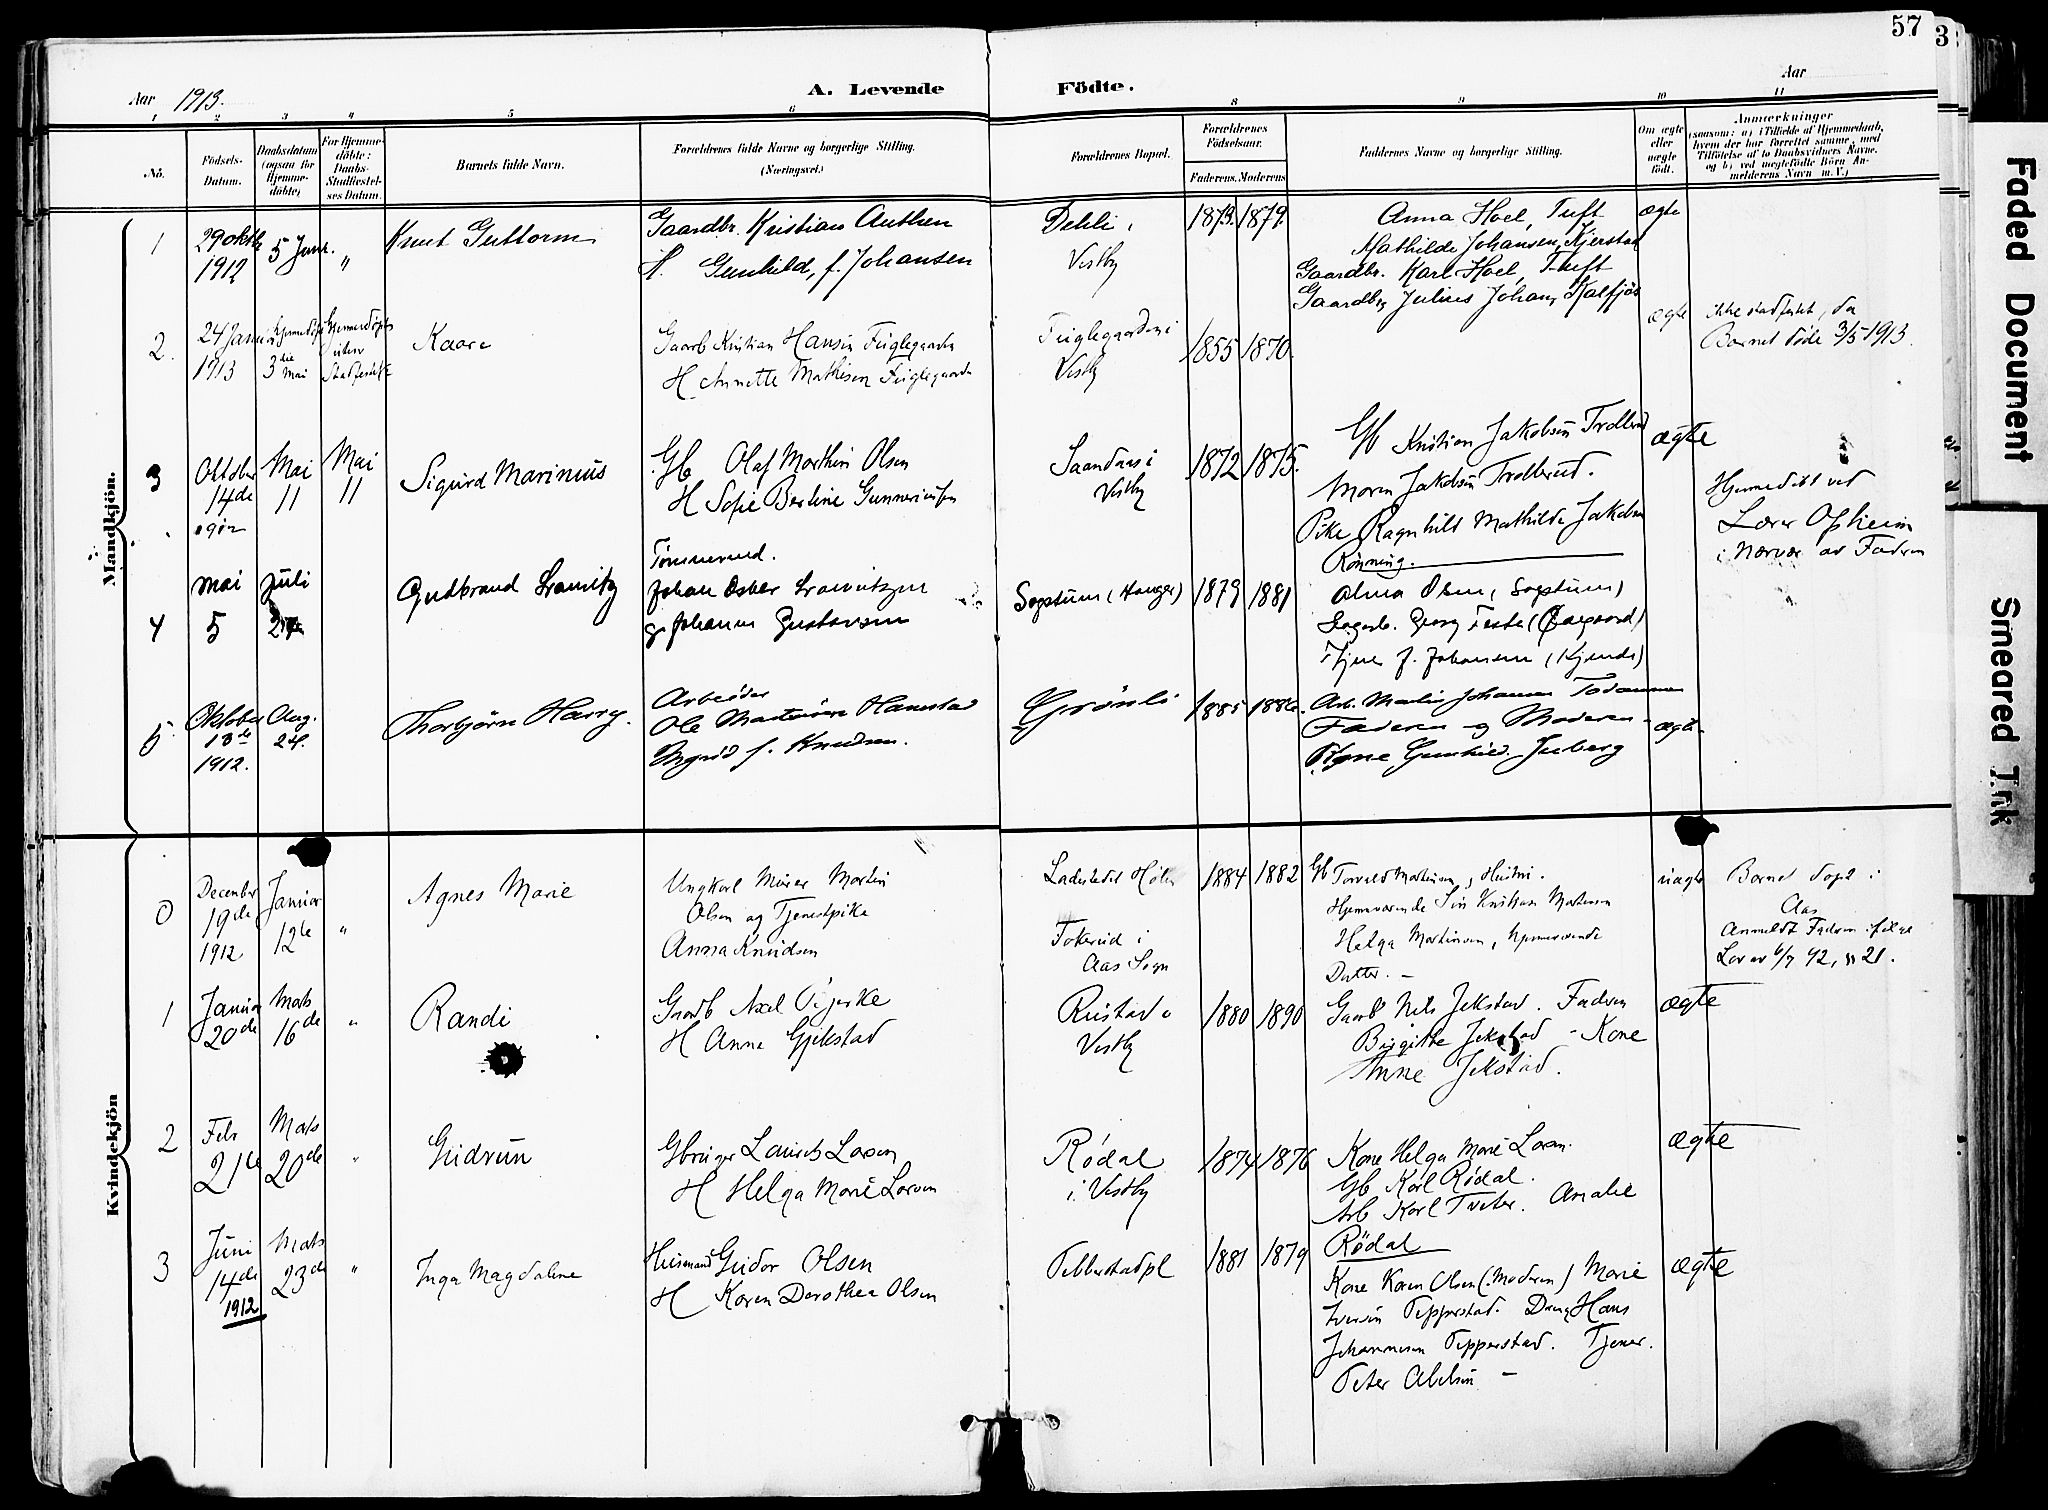 57
3
Aar 1913.
A. Levende Födte.
Aar
1 2 3 4 5 6 8 9 10 11
No.
Födsels-
Datum.
Daabsdatum
(ogsaa for
Hjemme-
döbte)
For Hjemme-
döbte:
Daabs-
Stadfæstel-
ses Datum.
Barnets fulde Navn.
Forældrenes fulde Navne og borgerlige Stilling.
(Næringsvei.)
Forældrenes Bopæl.
Forældrenes
Födselsaar.
Faderens. Moderens
Faddernes Navne og borgerlige Stilling.
Om ægte
eller
uægte
födt.
Anmærkninger
(saasom: a) i Tilfælde af Hjemmedaab,
hvem der har forrettet samme, med
Tilföielse af to Daabsvidners Navne,
og b) ved uægtefödte Börn An-
melderens Navn m. V.)
Mandkjön.
1
29 oktb
1912
5 Janr.
"
Knut Guttorm
Gaardbr. Kristian Anthen
H. Gunhild, f. Johansen
Dehli i
Vestby
1873. 1879.
Anna Hoel, Tuft
Mathilde Johansen, Kjerstad
Gaardbr. Karl Hoel, Thuft
Gaardbr Julius Johans Kalfjös
ægte
2.
24 Januar
1913
Hjemmedöpt
3die Mai
Hjemmedöpt
uten
Stadfestelse
Kaare
Gaarb Kristian Hansen Fuglegaarden
H Annette Mathisen Fuglegaarden
Fuglegaarden i
Vestby
1855 1870.
ægte
ikke stadfestet, da
Barnet döde 3/5 1913.
3
Oktober
14de
1912
Mai
11
Mai
11
Sigurd Marinius
Gb Olaf Marthin Olsen
H Sofie Berline Gunneriusen
Saandaas i
Vestby
1872 1875.
Gb Kristian Jakobsen Trollerud
Maren Jakobsen Trollerud.
Pike Ragnhild Mathilde Jakobsen
Rönning.
ægte
Hjemmedöbt ved
Lærer Opheim
i Nærvær av Faderen
4
Mai
5
Juli
27
Gudbrand Lauritz
Tömmermd.
Johan Oskar Lauritzen
g. Johanne Gustavsen
Sogstuen (Hauger)
1879 1881
Alma Olsen, (Sogstuen)
Sagarb. Georg Feste (Ögaard)
Tjen f. Johansen (Kjends)
5
Oktober
13de
1912.
Aug.
24.
Thorbjörn Harry.
Arbeider
Ole Martinsen Hanestad
Ingrid f. Knudsen.
Grönli
1885 1886.
Arb. Martin Johansen
Faderen og Moderen
Pige Gunhild Juberg
ægte
Kvindekjön
0
December
19de
1912
Januar
12te
"
Agnes Marie
Ungkarl Murer Martin
Olsen og Tjenestpike
Anna Knudsen
Ladestedet Hölen
Fokerud i
Aas Sogn
1884 1882
Gb Torvald Martinsen, Hustru.
Hjemmeværende Sön Kristian Martinsen
Helga Martinsen, hjemmeværende
Datter. –
uægte
Barnet döpt i
Aas
Anmeldt Faderen ifölge
Lov av 6/7 92, § 21.
1
Januar
20de
Mars
16de
"
Randi
Gaarb Axel Gjerke
H Anna Gjekstad
Rustad i
Vestby
1880 1890
Gaarb Nils Jekstad. Faderen
Birgitte Jekstad – Kone
Anne Jekstad.
ægte
2
Febr
21de
Mars
20de
"
Gudrun
Gbruger Laurits Larsen
H Helga Marie Larsen
Rödal
i Vestby
1874 1876
Kone Helga Marie Larsen.
Gb Karl Rödal.
Arb Karl Tveter. Amalie
Rödal
ægte
3
Juni
14de
1912
Mars
23de
"
Inga Magdalene
Husmand Gudor Olsen
H Karen Dorothea Olsen
Tebberstadpl
1881 1879
Kone Karen Olsen (Moderen) Marie
Iversen Tepperstad. Dreng Hans
Johannesen Tepperstad. Tjener.
Peter Abelsen –
ægte
Faded Document
Smeared Ink